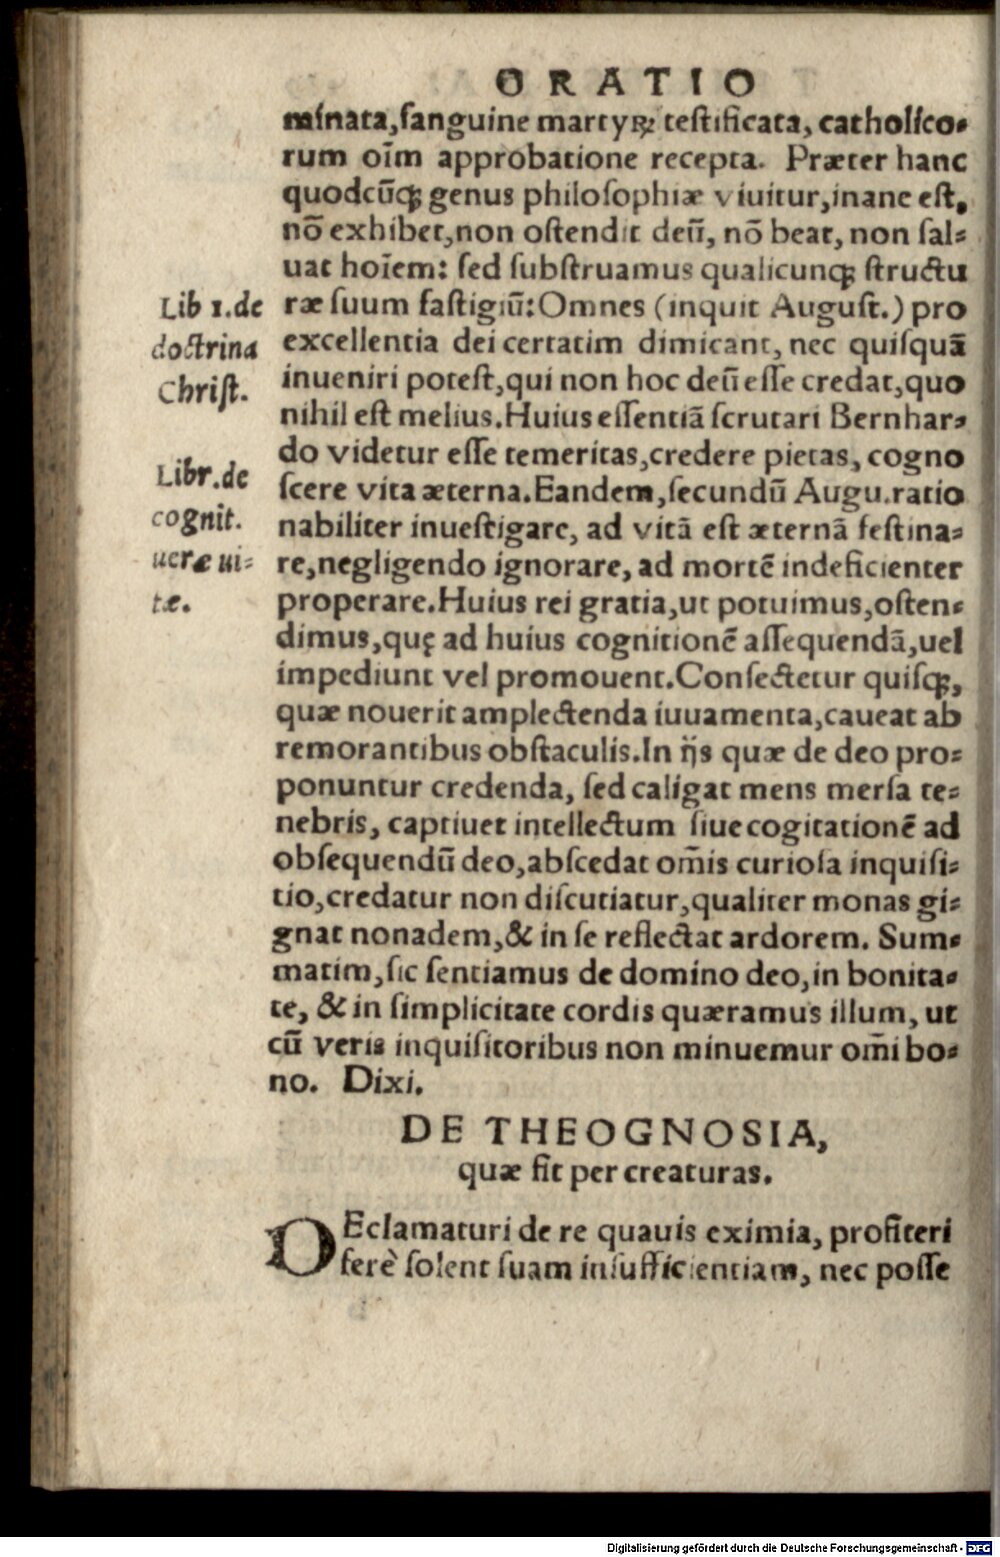 ORATIO
minata,ſanguine martyꝝ teſtificata, catholico-
rum oīm approbatione recepta. Præter hanc
quodcūꝗ; genus philoſophiæ viuitur,inane eſt,
nō exhibet,non oſtendit deū, nō beat, non ſal-
uat hoīem: ſed ſubſtruamus qualicunꝗ; ſtructu
Lib 1.de
doctrina
Chriſt.
ræ ſuum faſtigiū:Omnes (inquit Auguſt.) pro
excellentia dei certatim dimicant, nec quiſquā
inueniri poteſt,qui non hoc deū eſſe credat,quo
nihil eſt melius.Huius eſſentiā ſcrutari Bernhar-
do videtur eſſe temeritas,credere pietas, cogno
Libr.de
cognit.
ueræ ui-
tæ.
ſcere vita æterna.Eandem,ſecundū Augu.ratio
nabiliter inueſtigare, ad vitā eſt æternā feſtina-
re,negligendo ignorare, ad mortē indeficienter
properare.Huius rei gratia,ut potuimus,oſten-
dimus,quę ad huius cognitionē aſſequendā,uel
impediunt vel promouent.Conſectetur quiſꝗ;,
quæ nouerit amplectenda iuuamenta,caueat ab
remorantibus obſtaculis.In ijs quæ de deo pro-
ponuntur credenda, ſed caligat mens merſa te-
nebris, captiuet intellectum ſiue cogitationē ad
obſequendū deo,abſcedat om̄is curioſa inquiſi-
tio,credatur non diſcutiatur,qualiter monas gi-
gnat nonadem,& in ſe reflectat ardorem. Sum-
matim,ſic ſentiamus de domino deo,in bonita-
te, & in ſimplicitate cordis quæramus illum, ut
cū veris inquiſitoribus non minuemur om̄i bo-
no. Dixi.
DE THEOGNOSIA,
quæ fit per creaturas.
DEclamaturi de re quauis eximia, profiteri
ferè ſolent ſuam inſufficientiam, nec poſſe
Digitalisierung gefördert durch die Deutsche Forschungsgemeinschaft - DFG